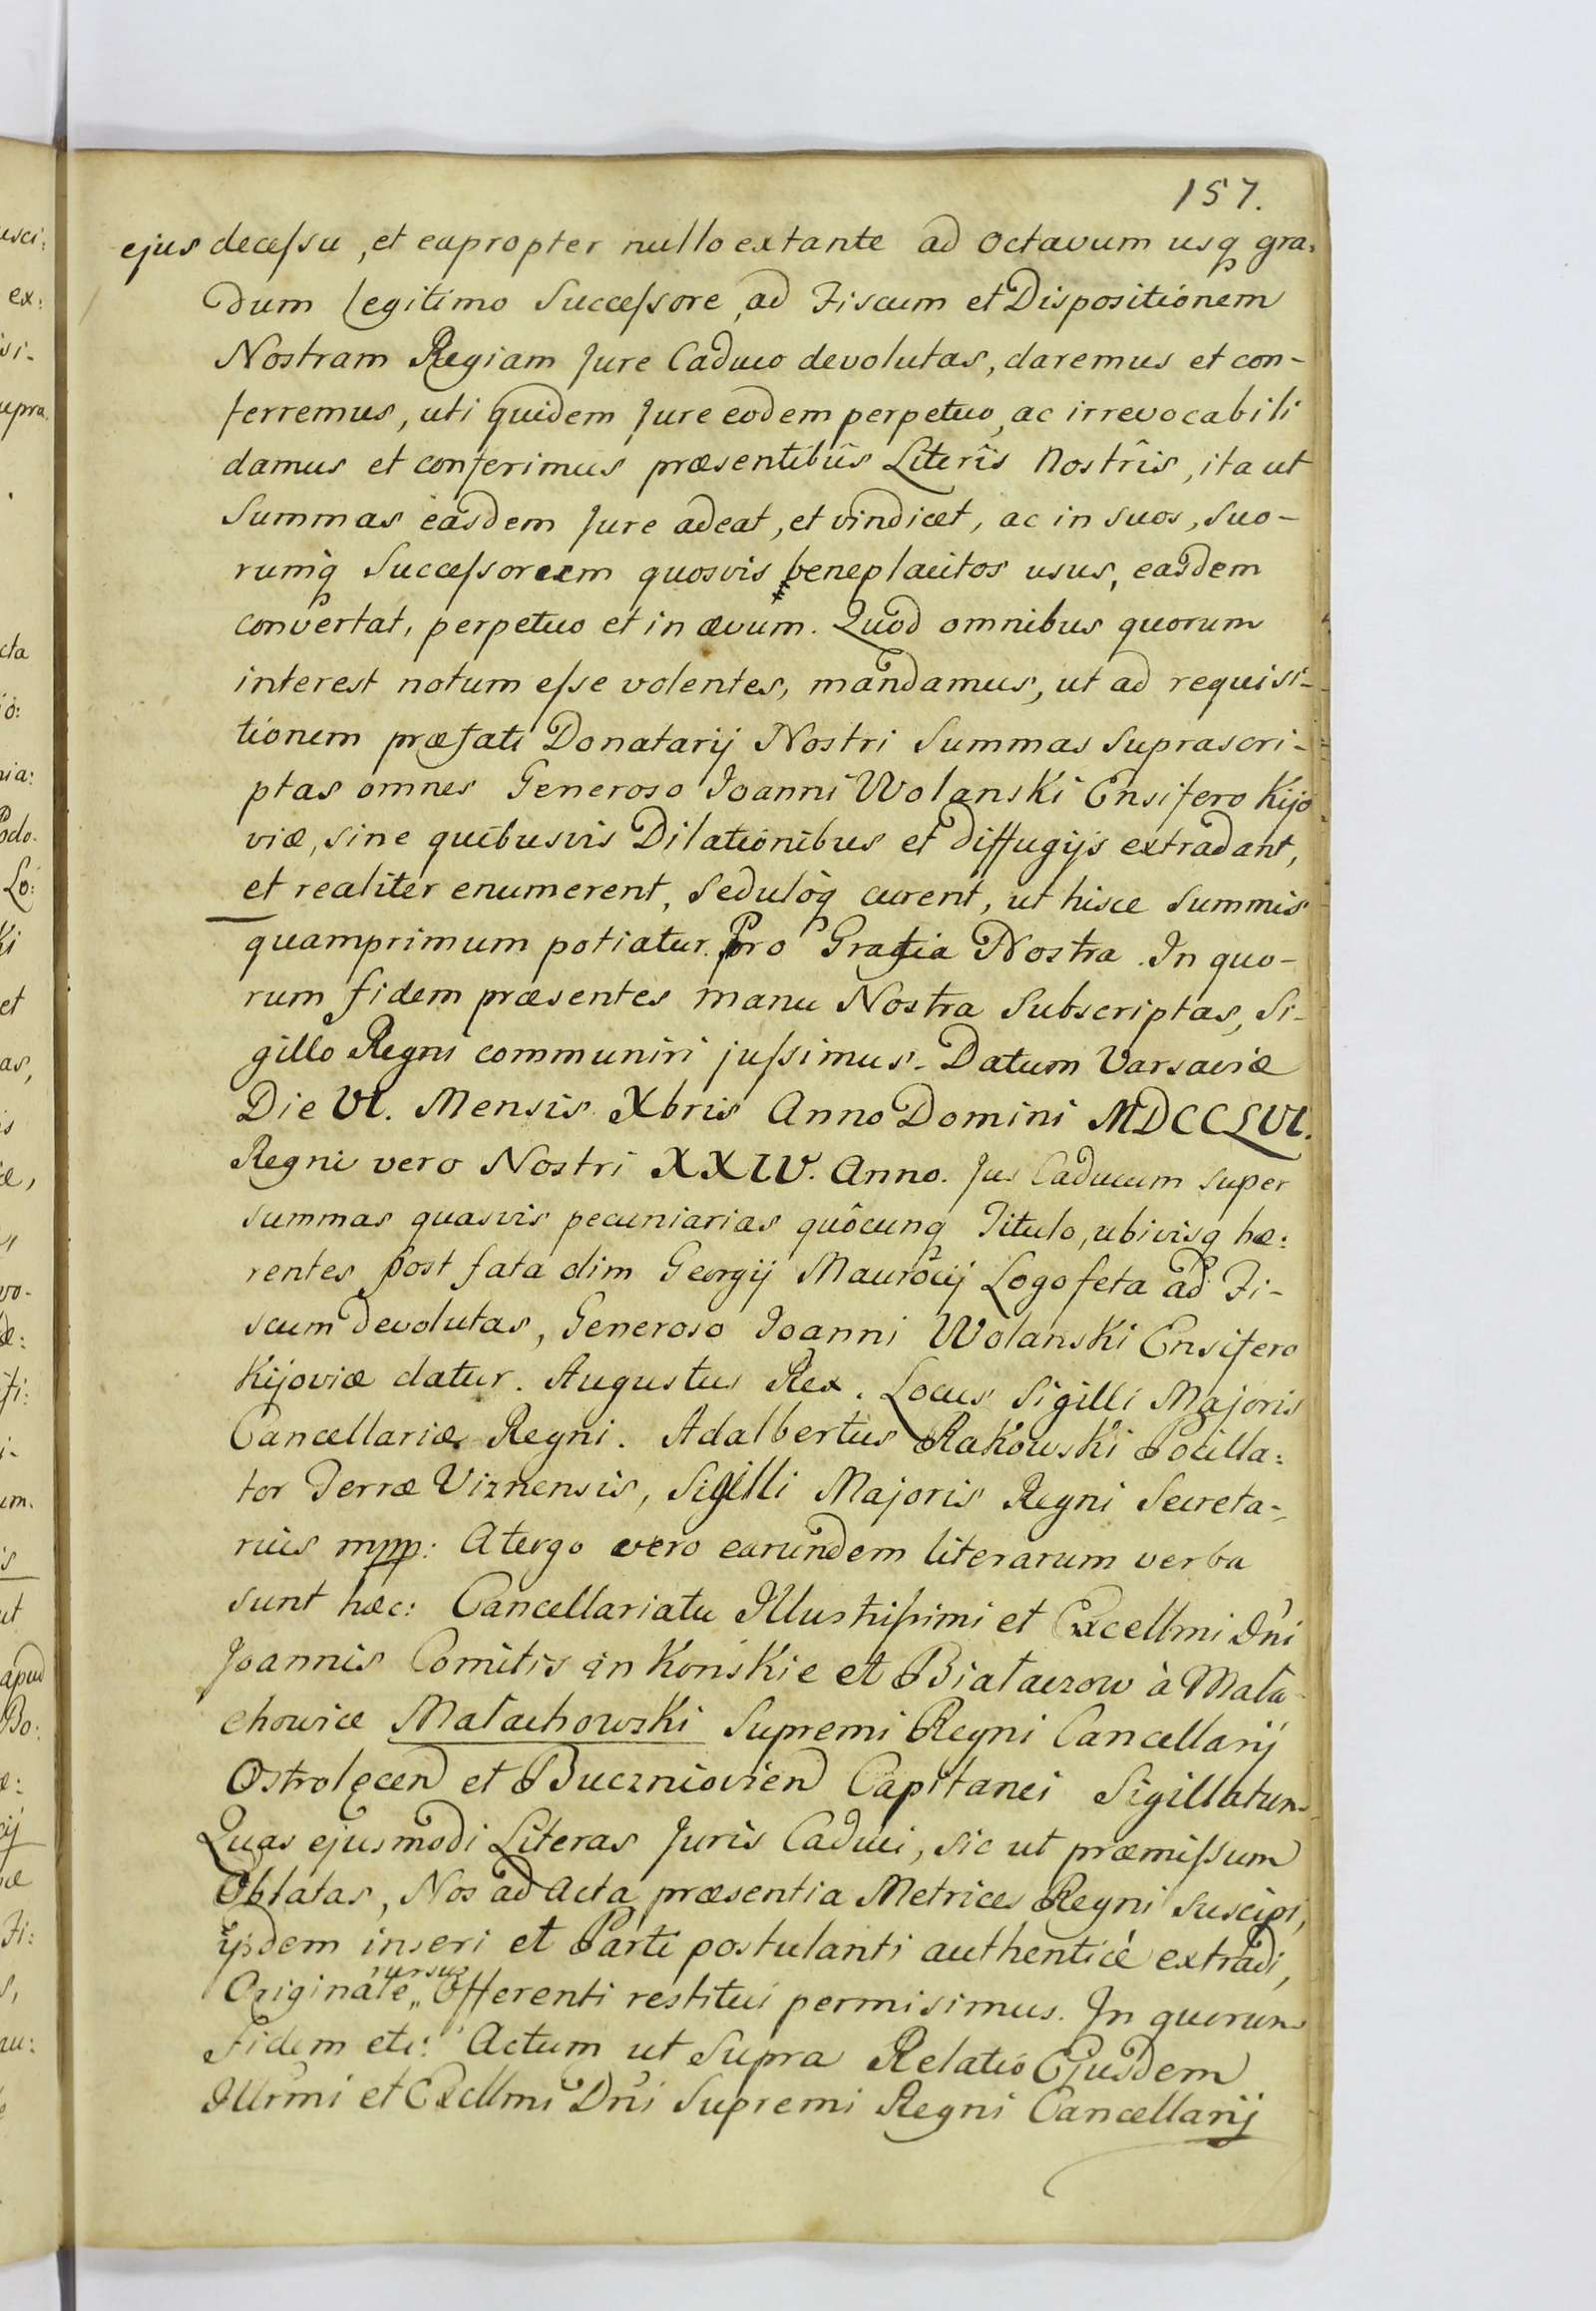 157.
ejus decessu, et eapropter nullo extante ad Octavum usq gra:
dum legitimo Successore, ad Fiscum et Dispositionem
Nostram Regiam Jure Caduco devolutas, daremus et con-
ferremus, uti quidem Jure eodem perpetuo, ac irrevocabili
damus et conferimus præsentibûs Literîs Nostrîs, ita ut
Summas easdem Jure adeat, et vindicet, ac in suos, Suo-
rumq Successorum quosvis beneplacitos usus, easdem
convertat, perpetuo et in ævum. Quod omnibus quorum
interest notum esse volentes, mandamus, ut ad requisi-
tionem præfati Donatarij Nostri Summas Suprascri-
ptas omnes Generoso Joanni Wolanski Ensifero Kijo
viæ, sine quibusvis Dilationibus et diffugijs extradant,
et realiter enumerent, Seduloq curent, ut hisce Summis
quamprimum potiatur. Pro Gratia Nostra. In quo-
rum fidem præsentes manu Nostra Subscriptas, Si-
gillo Regni communiri jussimus. Datum Varsaviæ
Die VI. Mensis Xbris Anno Domini MDCCLVI.
Regni vero Nostri XXIV. Anno. Jus Caducum super
summas quasvis pecuniarias quôcunq Titulo, ubivisq hæ:
rentes post fata olim Georgij Maurocij Logofeta ad Fi-
scum devolutas, Generoso Joanni Wolanski Ensifero
Kijoviæ datur. Augustus Rex. Locus Sigilli Majoris
Cancellariæ Regni. Adalbertus Rakowski Pocilla:
tor Terræ Viznensis, Sigilli Majoris Regni Secreta-
rius mpp: A tergo vero earundem literarum verba
sunt hæc: Cancellariatu Illustrissimi et Excellmi Dni
Joannis Comitis in Konskie et Białaczow à Mała
chowice Małachowski Supremi Regni Cancellarij
Ostrolęcen et Buczniovien Capitanei Sigillatum
Quas ejusmodi Literas Juris Caduci, sic ut præmissum
Oblatas, Nos ad Acta præsentia Metrices Regni suscipi,
ijsdem inseri et Parti postulanti authenticè extradi,
Originale „ rursus Offerenti restitui permisimus. In quorum
fidem etc: Actum ut Supra Relatio Ejusdem
Illrmi et Excllmi Dni Supremi Regni Cancellarij